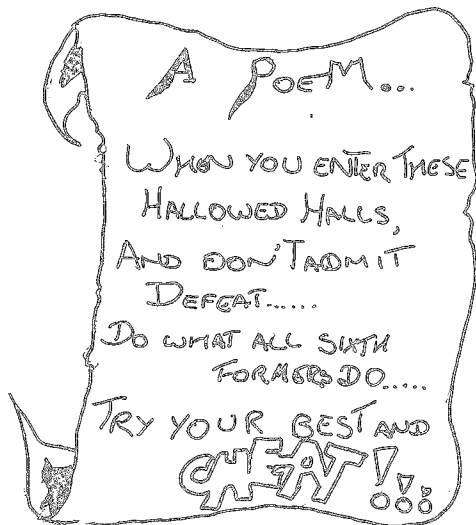 A POEM...
WHEN YOU ENTER THESE
HALLOWED HALLS,
AND DON'T ADMIT
DEFEAT......
DO WHAT ALL SIXTH
FORMERS DO.....
TRY YOUR BEST AND
CHEAT!!!